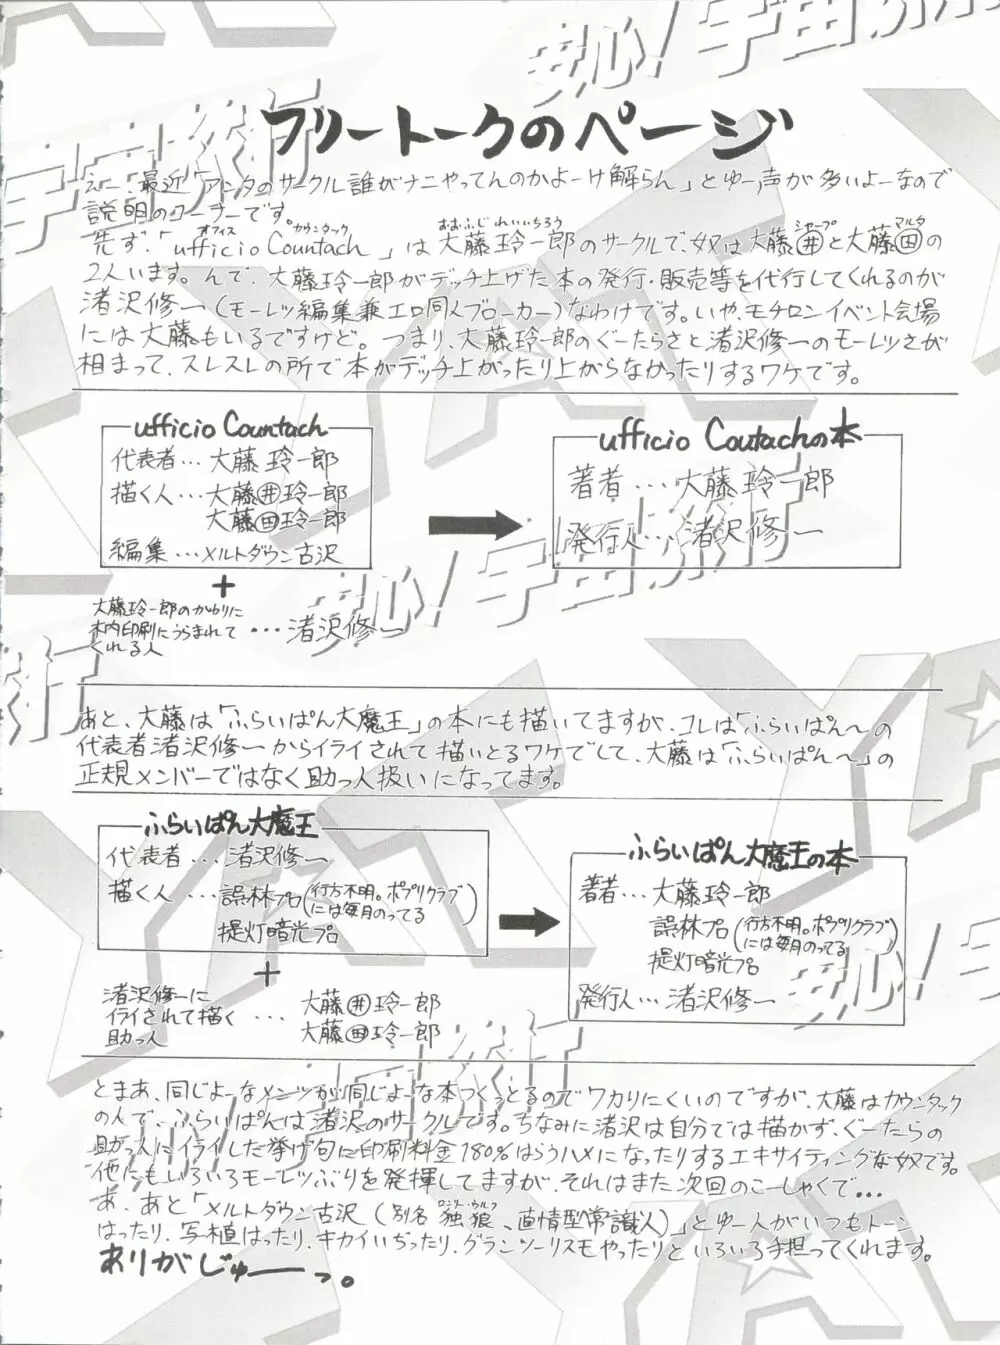 フリートークのページ
えー、最近「アンタのサークル誰がナニやってんのかよーけ解らん」とゆー声が多いよーなので
説明のコーナーです。
先ず、「ufficio Countach」は大藤玲一郎のサークルで、奴は大藤㊉と大藤㊉の
オフィス カウンタック おおふじ れいいちろう シャープ マルタ
2人います。んで、大藤玲一郎がデッチ上げた本の発行・販売等を代行してくれるのが
渚沢修一(モーレツ編集兼エロ同人ブローカー)なわけです。いや、モチロンイベント会場
には大藤もいるですけど。つまり、大藤玲一郎のぐーたらさと渚沢修一のモーレツさが
相まって、スレスレの所で本がデッチ上がったり上がらなかったりするワケです。
ufficio Countach
代表者…大藤玲一郎
描く人…大藤井玲一郎
大藤田玲一郎
編集…メルトダウン古沢
+
大藤玲一郎のかわりに
木内印刷にうらまれて
くれる人
…渚沢修一
ufficio Coutachの本
著者…大藤玲一郎
発行人…渚沢修一
あと、大藤は「ふらいぱん大魔王」の本にも描いてますが、コレは「ふらいぱん〜」の
代表者渚沢修一からイライされて描いとるワケでして、大藤は「ふらいぱん〜」の
正規メンバーではなく助っ人扱いになってます。
ふらいぱん大魔王
代表者…渚沢修一
描く人…誤林プロ(行方不明。ポプリクラブには毎月のってる)
提灯暗光プロ
+
渚沢修一に
イライされて描く
助っ人
…大藤井玲一郎
大藤田玲一郎
ふらいぱん大魔王の本
著者…大藤玲一郎
誤林プロ(行方不明。ポプリクラブには毎月のってる)
提灯暗光プロ
発行人…渚沢修一
とまあ、同じよーなメンツが同じよーな本つくっとるのでワカりにくいのですが、大藤はカウンタック
の人で、ふらいぱんは渚沢のサークルです。ちなみに渚沢は自分では描かず、ぐーたらの
助っ人にイライした挙げ句に印刷料金180%はらうハメになったりするエキサイティングな奴です。
他にもいろいろモーレツぶりを発揮してますが、それはまた次回のこーしゃくで…
あ、あと「メルトダウン古沢(別名 独狼、直情型常識人)」とゆー人がいつもトーン
ロンリーウルフ
はったり、写植はったり、キカイいぢったり、グランツーリスモやったりといろいろ手担ってくれます。
ありがじゅーっ。
安心!宇宙旅行
YAT